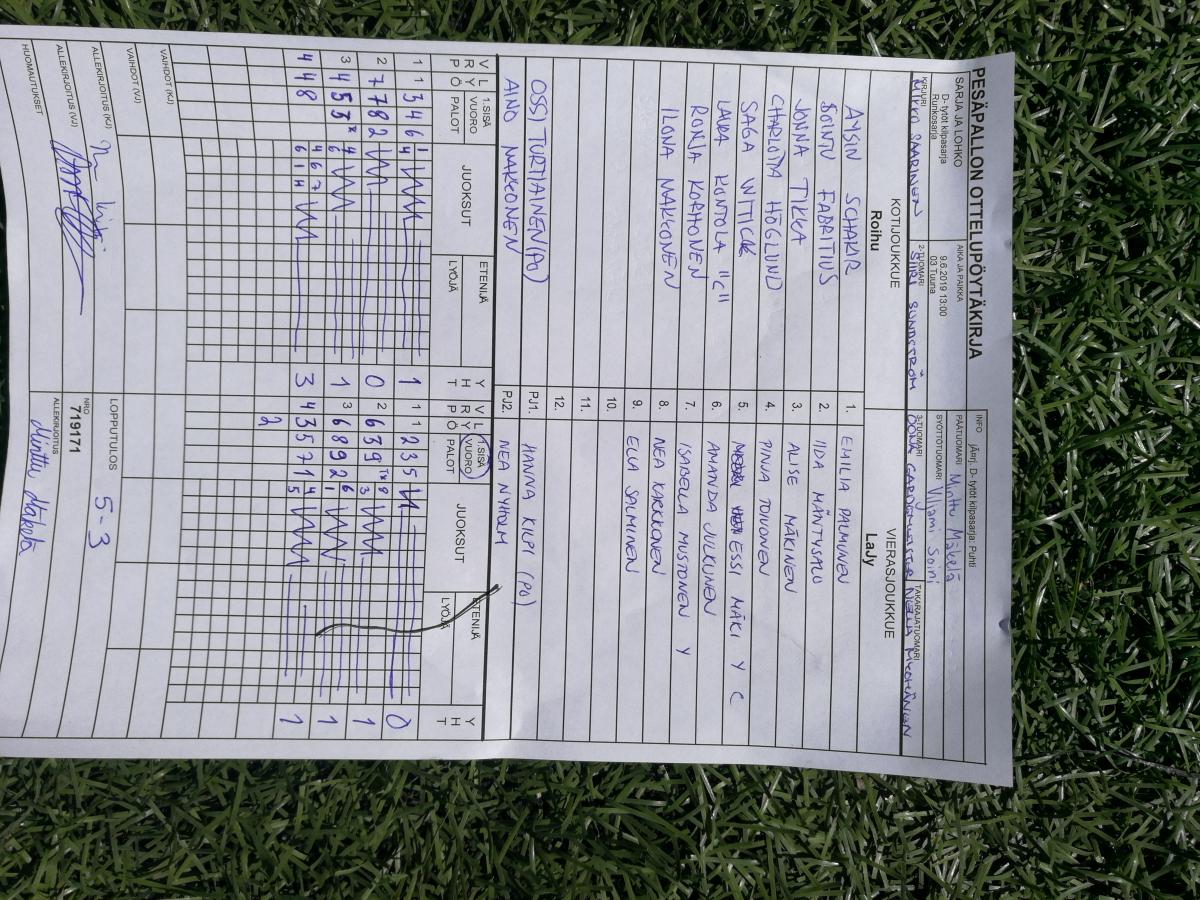 PESÄPALLON OTTELUPÖYTÄKIRJA
SARJA JA LOHKO
D- tytöt kilpasarja
Runkosarja
AIKA JA PAIKKA
9.6.2019 13:00
03 Tuuna
INFO järj. D- tytöt kilpasarja: Puhti
PÄÄTUOMARI Minttu Mäkelä
SYÖTTÖTUOMARI Viljami Soini
KIRJURI SAARINEN
2-TUOMARI SIIRI SUNDSTRÖM
3-TUOMARI
TAKARAJATUOMARI
KOTIJOUKKUE
Roihu
VIERASJOUKKUE
LaJy
AYSIN SCHAKIR 1. EMILIA PALMUNEN
POINTU FABRITIUS 2. IIDA MÄNTYSALO
JONNA TIKKA 3. ALISE MÄKINEN
CHARLOTTA HÖGLUND 4. PINJA TOIVONEN
SAGA WITICK 5. ESSI MÄKI Y C
LAURA KONTOLA "C" 6. AMANDA JULKUNEN
RONJA KORHONEN 7. ISABELLA MUSTONEN Y
ILONA NAKKONEN 8. NEA KARKKONEN
9. ELLA SALMINEN
10.
11.
12.
OSSI TURTIAINEN (PO) PJ1. HANNA KILPI (PO)
AINO NAKKONEN PJ2. NEA NYHOLM
V L R Y P Ö 1.SISÄ VUORO PALOT JUOKSUT ETENIJÄ LYÖJÄ Y H T
V L R Y P Ö 1.SISÄ VUORO PALOT JUOKSUT ETENIJÄ LYÖJÄ Y H T
1 1 3 4 6 1 4 1 1 1 2 3 5 0
2 7 7 8 2 0 2 6 3 9 3 1
3 4 5 3 4 6 1 3 6 8 9 2 1 6 1
4 4 8 4 6 7 3 4 3 5 7 1 4 5 1
2
VAIHDOT (KJ)
VAIHDOT (VJ)
LOPPUTULOS 5-3
ALLEKIRJOITUS (KJ)
ALLEKIRJOITUS (VJ)
NRO
719171
HUOMAUTUKSET
ALLEKIRJOITUS
Minttu Mäkelä